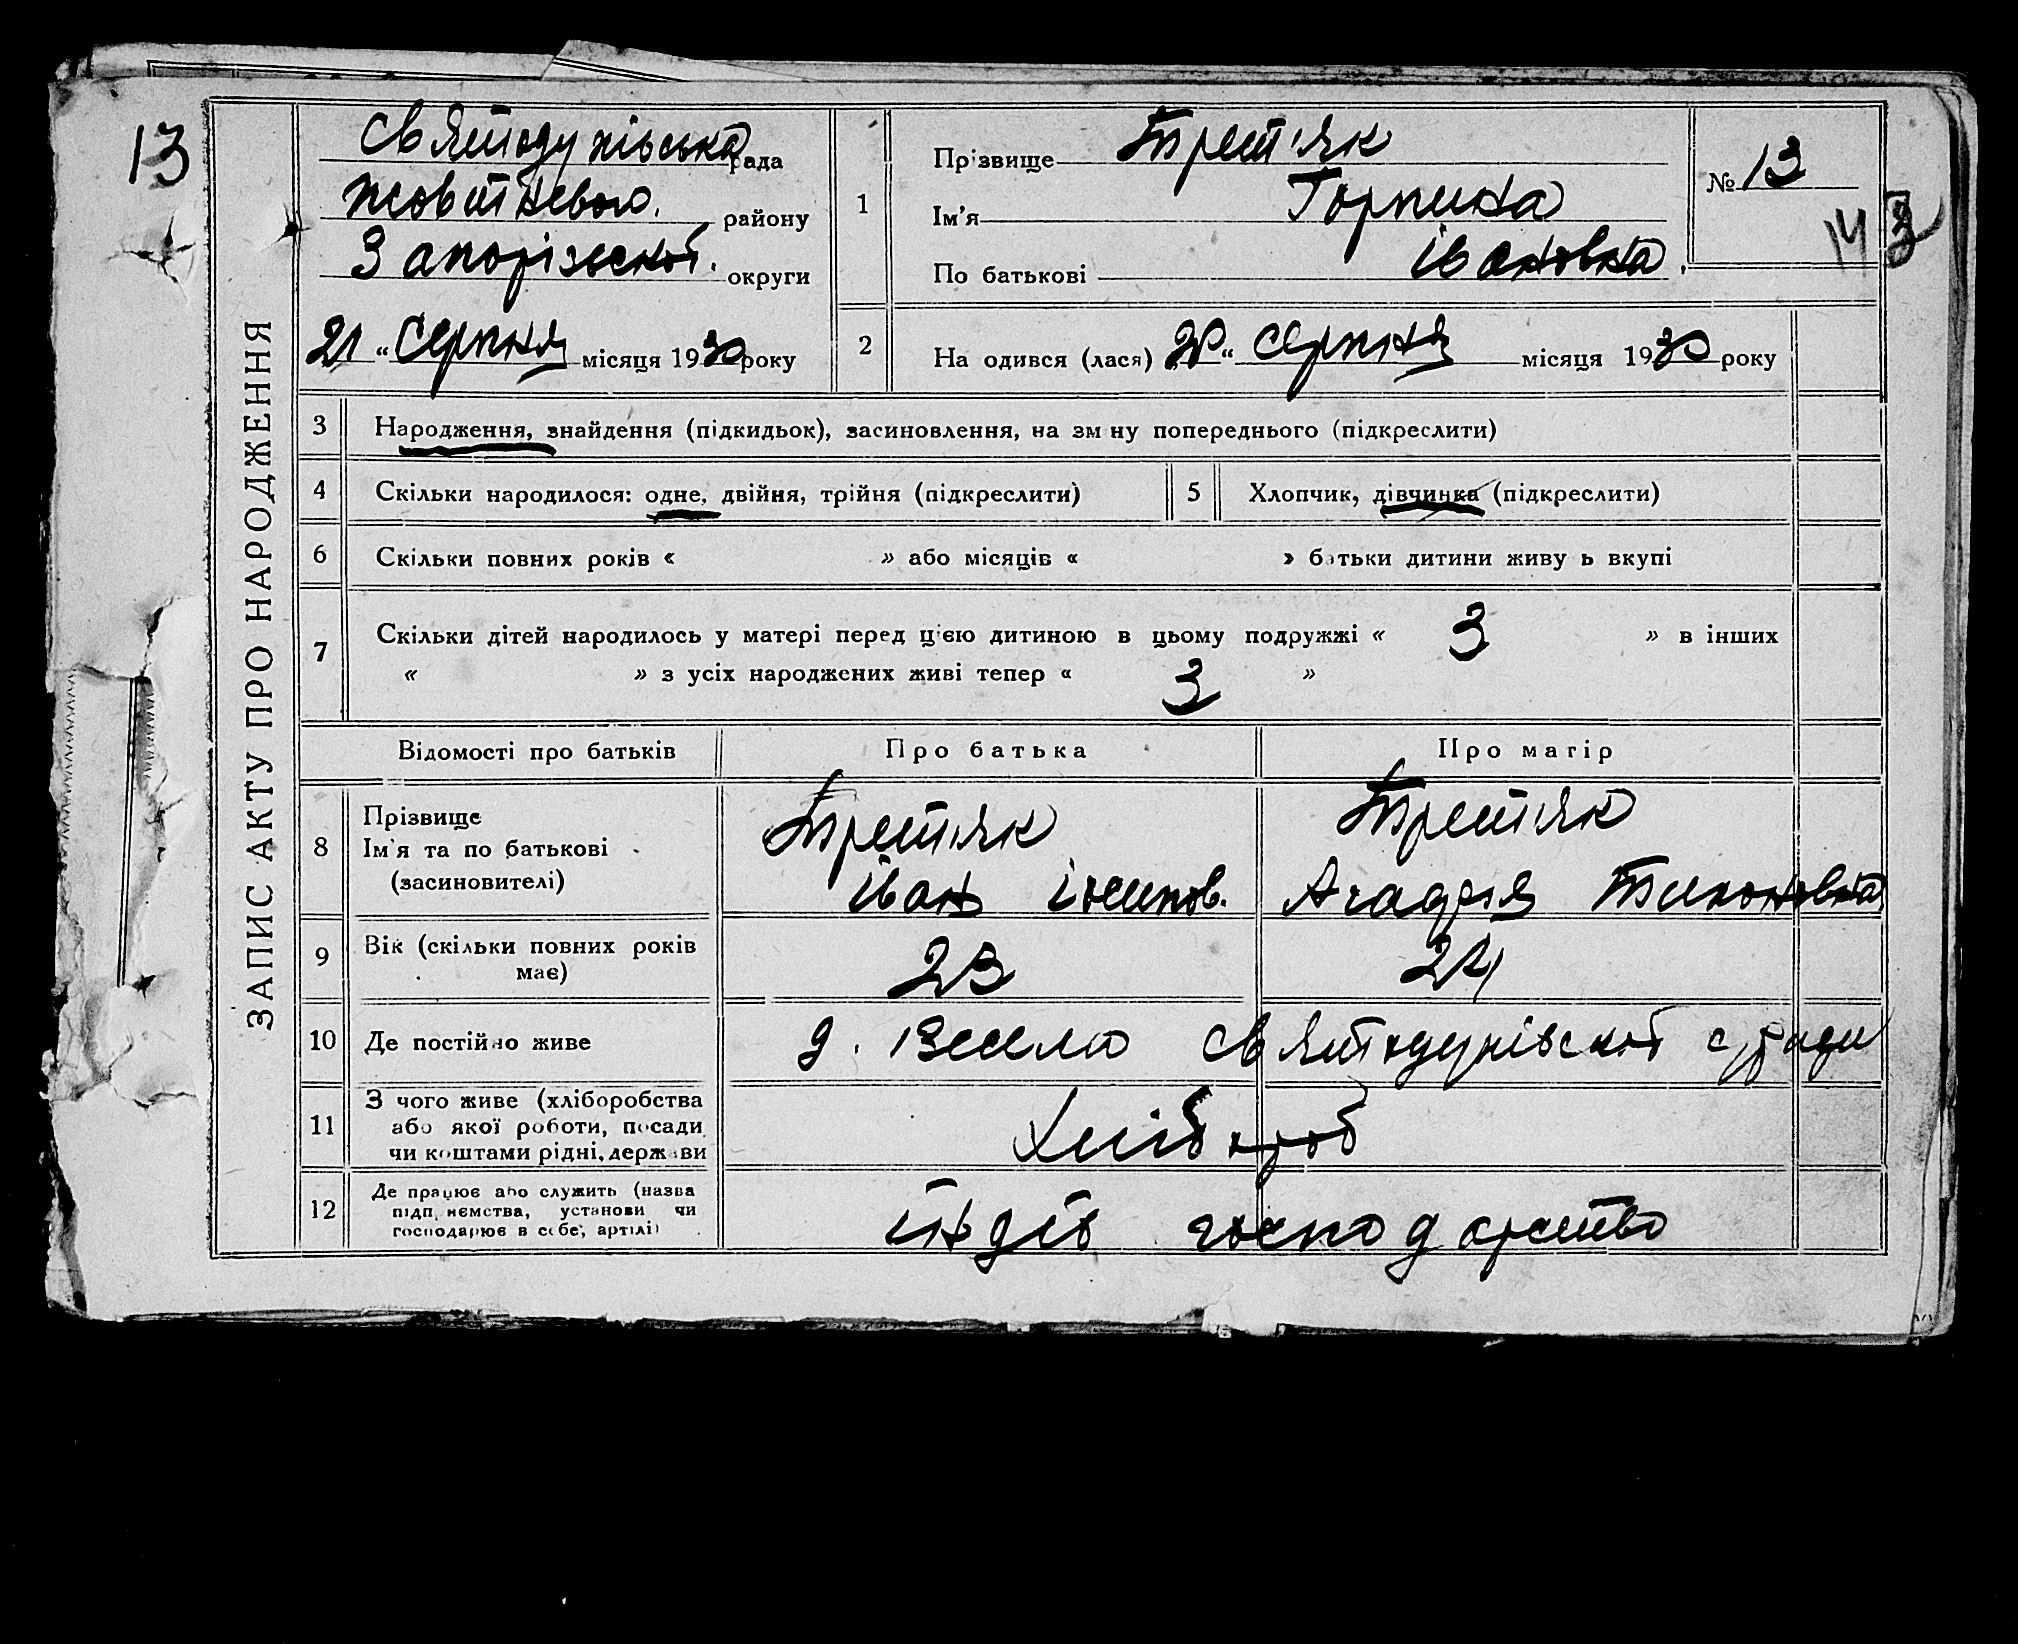 13
ЗАПИС АКТУ ПРО НАРОДЖЕННЯ
Святодухівська рада
Жовтневого району
Запорізської округи
21 " Серпня місяця 1930 року
1
Прізвище Трет'як
Ім'я Горпина
По батькові Івановна
№ 13
143
2
На одився (лася) 20 " серпня місяця 1930 року
3 Народження, знайдення (підкидьок), засиновлення, на зм ну попереднього (підкреслити)
4 Скільки народилося: одне, двійня, трійня (підкреслити)
5 Хлопчик, дівчинка (підкреслити)
6 Скільки повних років « » або місяців « » батьки дитини живу ь вкупі
7 Скільки дітей народилось у матері перед цією дитиною в цьому подружжі « 3 » в інших
« » з усіх народжених живі тепер « 3 »
Відомості про батьків Про батька Про матір
8 Прізвище
Ім'я та по батькові
(засновителі)
Трет'як
Іван Іосипов.
Третяк
Тихоновна
9 Вік (скільки повних років
має)
23 24
10 Де постійно живе
д. Весела Святодухівскої с/ради
11 З чого живе (хліборобства
або якої роботи, посади
чи коштами рідні, держави
Хлібороб
12 Де працює або служить (назва
підп иємства, установи чи
господарює в себе, артілі)
Індів господарство